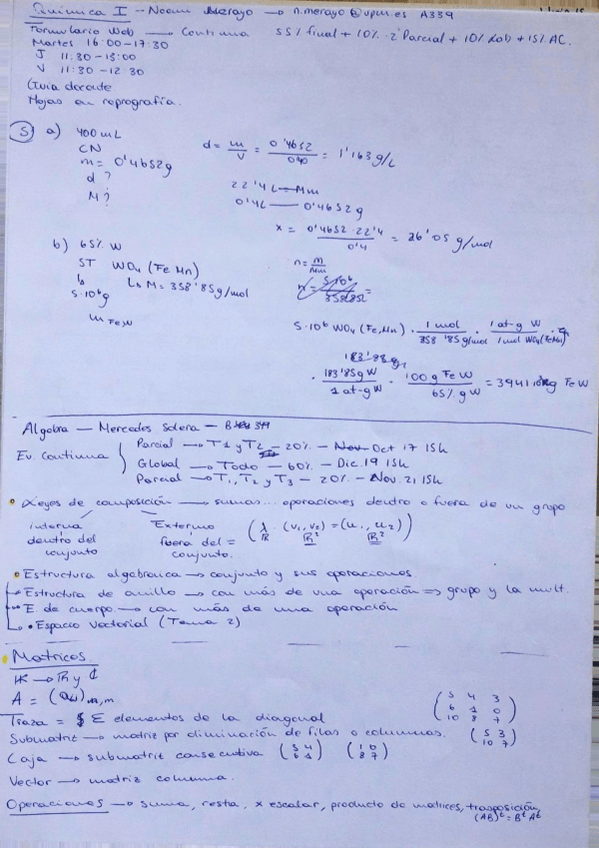 Química I - Noemi Merayo → n.merayo@upm.es A339
Formulario Web → Continua 55% final + 10% 2º Parcial + 10% Lab + 15% AC.
Martes 16:00-17:30
J 11:30-13:00
V 11:30-12:30
Guía docente
Hojas en reprografía.
5) a) 400 mL
CN
m = 0'4652g
d?
M?
d = m/V = 0'4652/0'40 = 1'163 g/L
22'4L — Mm
0'4L — 0'4652g
x = 0'4652·22'4/0'4 = 26'05 g/mol
b) 65% W
5T WO4 (Fe Mn)
↳ 5·10⁶g
↳ M = 358'85g/mol
m Fe,W
n = m/Mm
n = 5·10⁶/358'85 =
5·10⁶ WO4 (Fe,Mn) · 1 mol/358'85 g/mol · 1 at-g W/1 mol WO4(FeMn) ·
183'85g
· 183'85g W/1 at-g W · 100 g FeW/65% g W = 3941 kg FeW
Algebra — Mercedes — B 319
Ev. Continua
Parcial → T1 y T2 — 20% — Nov Oct 17 15h
Global → Todo — 60% — Dic. 19 15h
Parcial → T1, T2 y T3 — 20% — Nov. 21 15h
• Leyes de composición → sumas... operaciones dentro o fuera de un grupo
interna
dentro del
conjunto
Externo
fuera del =
conjunto.
(λ · (v1, v2) = (u1, u2))
ℝ ℝ² ℝ²
• Estructura algebraica → conjunto y sus operaciones
→ Estructura de anillo → con más de una operación ⇒ grupo y la mult.
→ E de cuerpo → con más de una operación
↳ • Espacio vectorial (Tema 2)
• Matrices
𝕂 → ℝ y ℂ
A = (aij)n,m
Traza = Σ elementos de la diagonal
(5 4 3
6 1 0
10 8 7)
Submatriz → matriz por eliminación de filas o columnas.
(5 3
10 7)
Caja → submatriz consecutiva (5 4
6 1) (1 0
8 7)
Vector → matriz columna.
Operaciones → suma, resta, x escalar, producto de matrices, trasposición,
(AB)ᵗ = Bᵗ Aᵗ